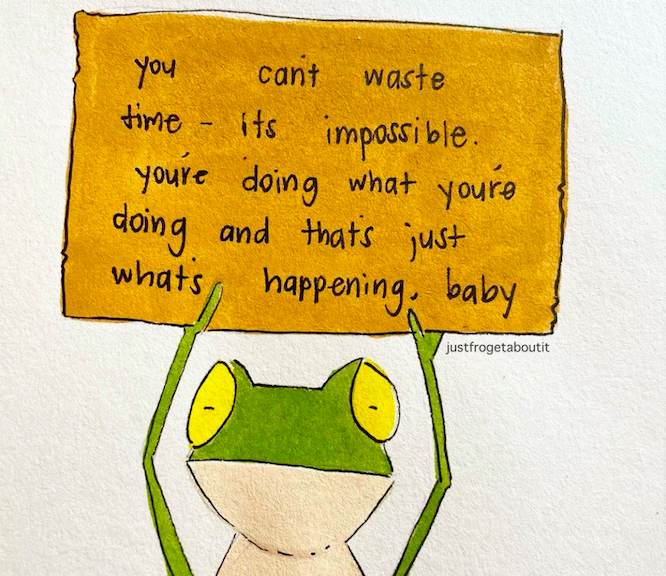 you can't waste
time - its impossible.
you're doing what you're
doing and that's just
what's happening, baby
justfrogetaboutit